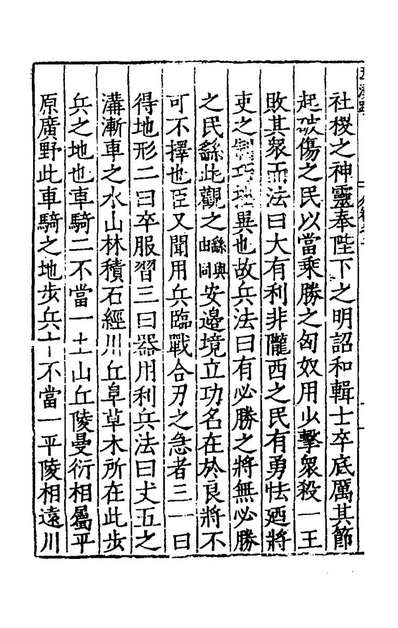 社稷之神靈奉陛下之明詔和輯士卒底厲其節
起破傷之民以當乘勝之匈奴用少擊衆殺一王
敗其衆而法曰大有利非隴西之民有勇怯廼將
吏之制巧拙異也故兵法曰有必勝之將無必勝
之民繇此觀之繇與由同安邊境立功名在於良將不
可不擇也臣又聞用兵臨戰合刃之急者三一曰
得地形二曰卒服習三曰器用利兵法曰丈五之
溝漸車之水山林積石經川丘阜草木所在此步
兵之地也車騎二不當一土山丘陵曼衍相屬平
原廣野此車騎之地步兵十不當一平陵相遠川